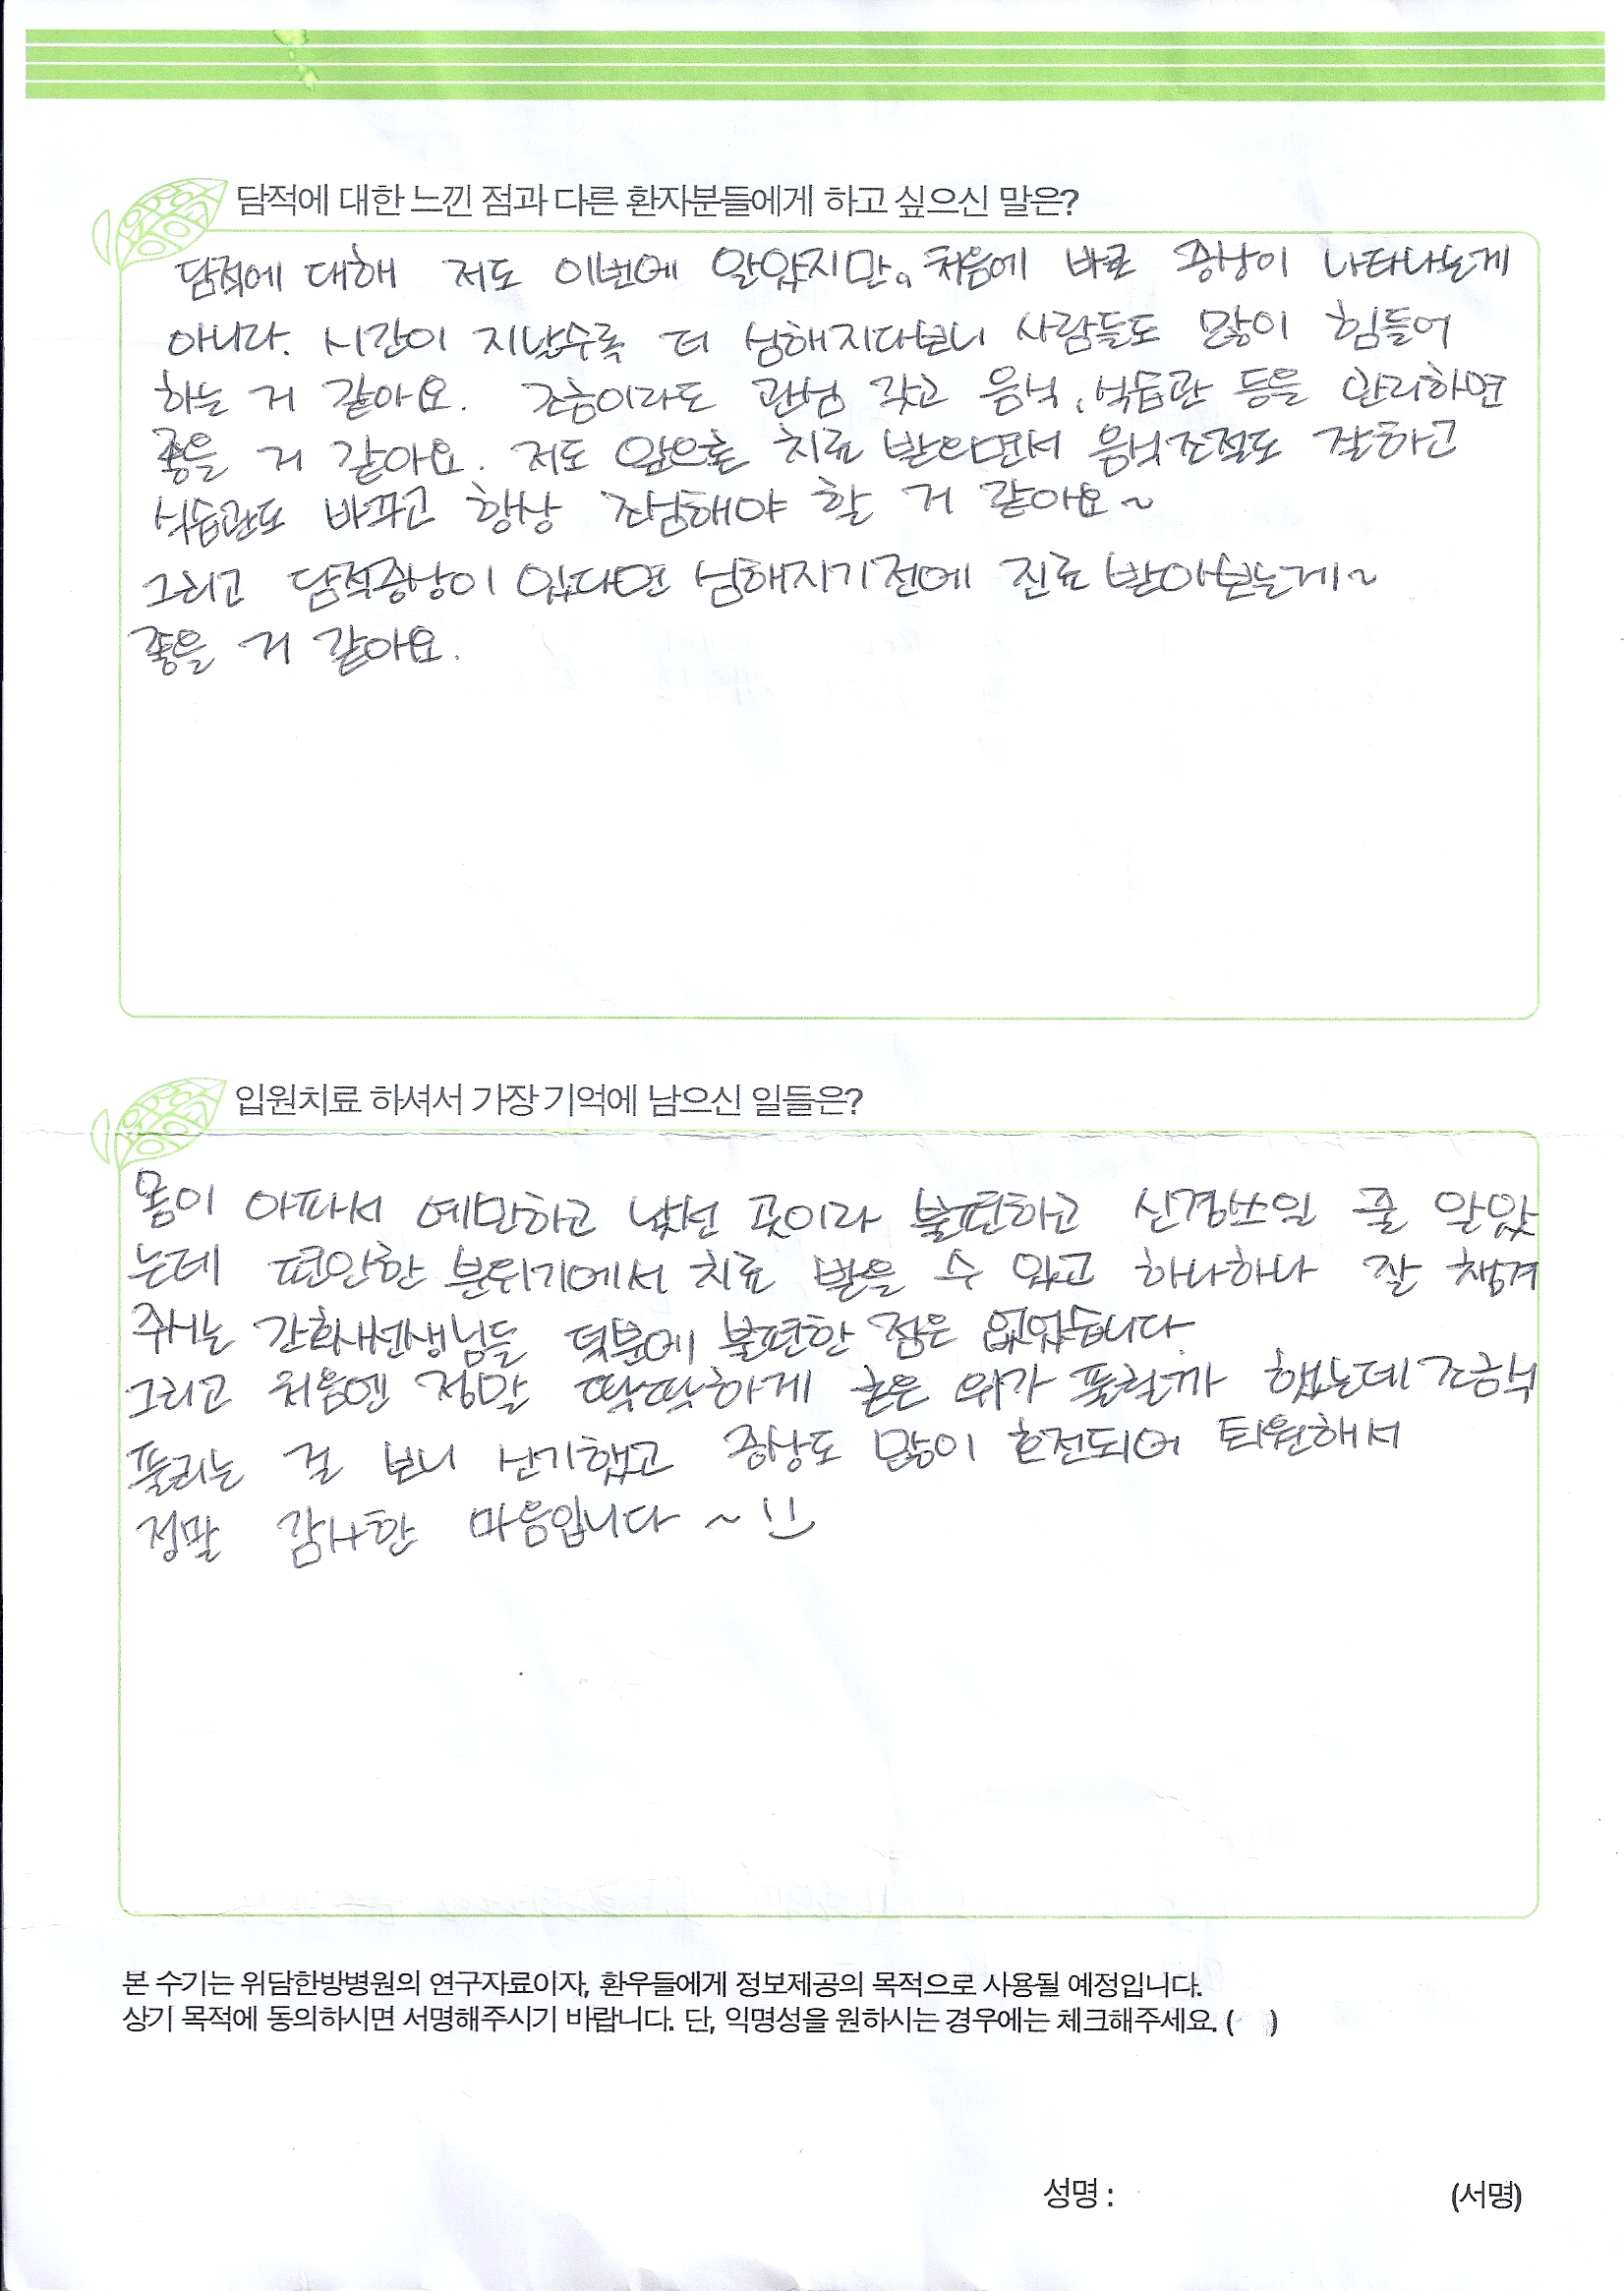 담적에 대한 느낀 점과 다른 환자분들에게 하고 싶으신 말은?
담적에 대해 저도 이번에 알았지만, 처음에 바로 증상이 나타나는게
아니라. 시간이 지날수록 더 심해지다보니 사람들도 많이 힘들어
하는 거 같아요. 조금이라도 관심 갖고 음식, 식습관 등을 관리하면
좋을 거 같아요. 저도 앞으로 치료 받으면서 음식조절도 잘하고
식습관도 바꾸고 항상 조심해야 할 거 같아요~
그리고 담적증상이 있다면 심해지기전에 진료 받아보는게~
좋을 거 같아요.
입원치료 하셔서 가장 기억에 남으신 일들은?
몸이 아파서 예민하고 낯선 곳이라 불편하고 신경쓰일 줄 알았
는데 편안한 분위기에서 치료 받을 수 있고 하나하나 잘 챙겨
주시는 간호사선생님들 덕분에 불편한 점은 없었습니다.
그리고 처음엔 정말 딱딱하게 굳은 위가 풀릴까 했는데 조금씩
풀리는 걸 보니 신기했고 증상도 많이 호전되어 퇴원해서
정말 감사한 마음입니다 ~
본 수기는 위담한방병원의 연구자료이자, 환우들에게 정보제공의 목적으로 사용될 예정입니다.
상기 목적에 동의하시면 서명해주시기 바랍니다. 단, 익명성을 원하시는 경우에는 체크해주세요. ( )
성명 : (서명)